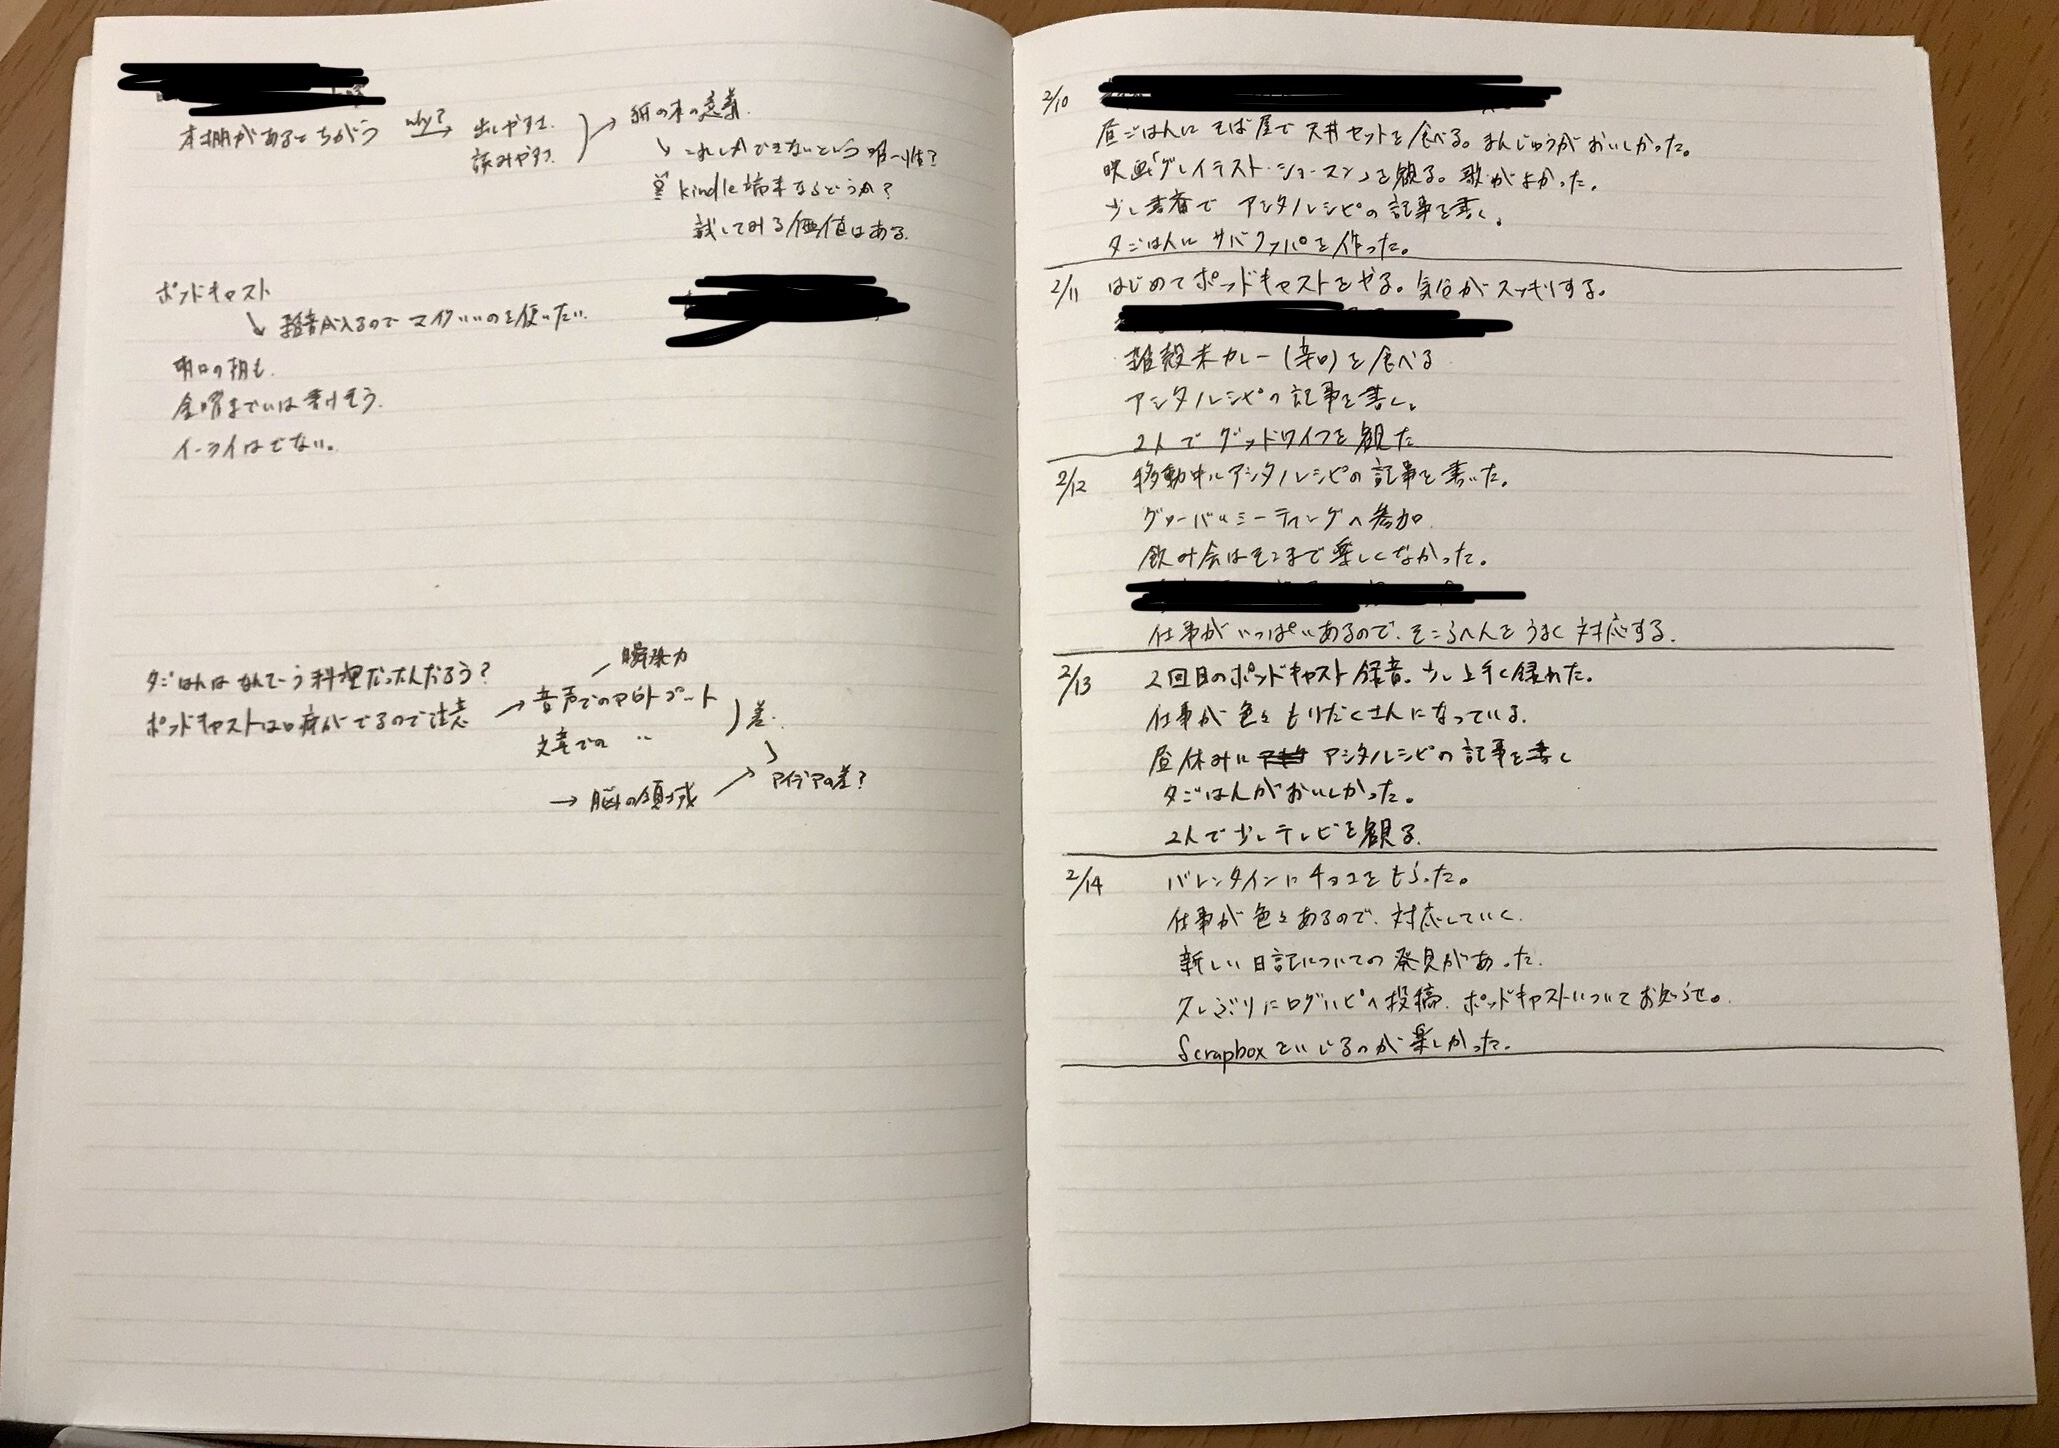 本棚があるとちがう
why?
出しやすさ
読みやすさ
紙の本の意義
これしかできないという唯一性?
kindle端末ならどうか?
試してみる価値はある。
ポッドキャスト
雑音が入るのでマイクいいのを使いたい。
明日の朝も
金曜までいは書けそう。
イーライはでない。
夕ごはんはなんていう料理だったんだろう?
ポッドキャストは口癖がでるので注意
瞬発力
音声でのアウトプット
文章での 〃
差
脳の領域
アイデアの差?
2/10
昼ごはんに そば屋で 天丼セットを食べる。まんじゅうがおいしかった。
映画「グレイテスト・ショーマン」を観る。歌がよかった。
少し書斎で アシタノレシピの記事を書く。
夕ごはんに サバクッパを作った。
2/11 はじめてポッドキャストをやる。気分がスッキリする。
雑穀米カレー(辛口)を食べる
アシタノレシピの記事を書く。
2人で グッドワイフを観た
2/12 移動中にアシタノレシピの記事を書いた。
グローバルミーティングへ参加
飲み会はそこまで楽しくなかった。
仕事がいっぱいあるので、そこらへんをうまく対応する。
2/13 2回目のポッドキャスト録音。少し上手く録れた。
仕事が色々もりだくさんになっている。
昼休みに アシタノレシピの記事を書く
夕ごはんがおいしかった。
2人で少しテレビを観る。
2/14 バレンタインにチョコをもらった。
仕事が色々あるので、対応していく。
新しい日記についての発見があった。
久しぶりにログハピへ投稿。ポッドキャストについてお知らせ。
Scrapboxをいじるのが楽しかった。